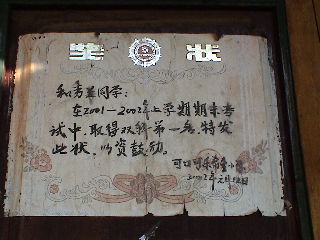 奖状
和秀羊同学:
在2001—2002年上学期期末考
试中,取得双科第一名,特发
此状,以资鼓励。
可口可乐希望小学
2002年元月12日